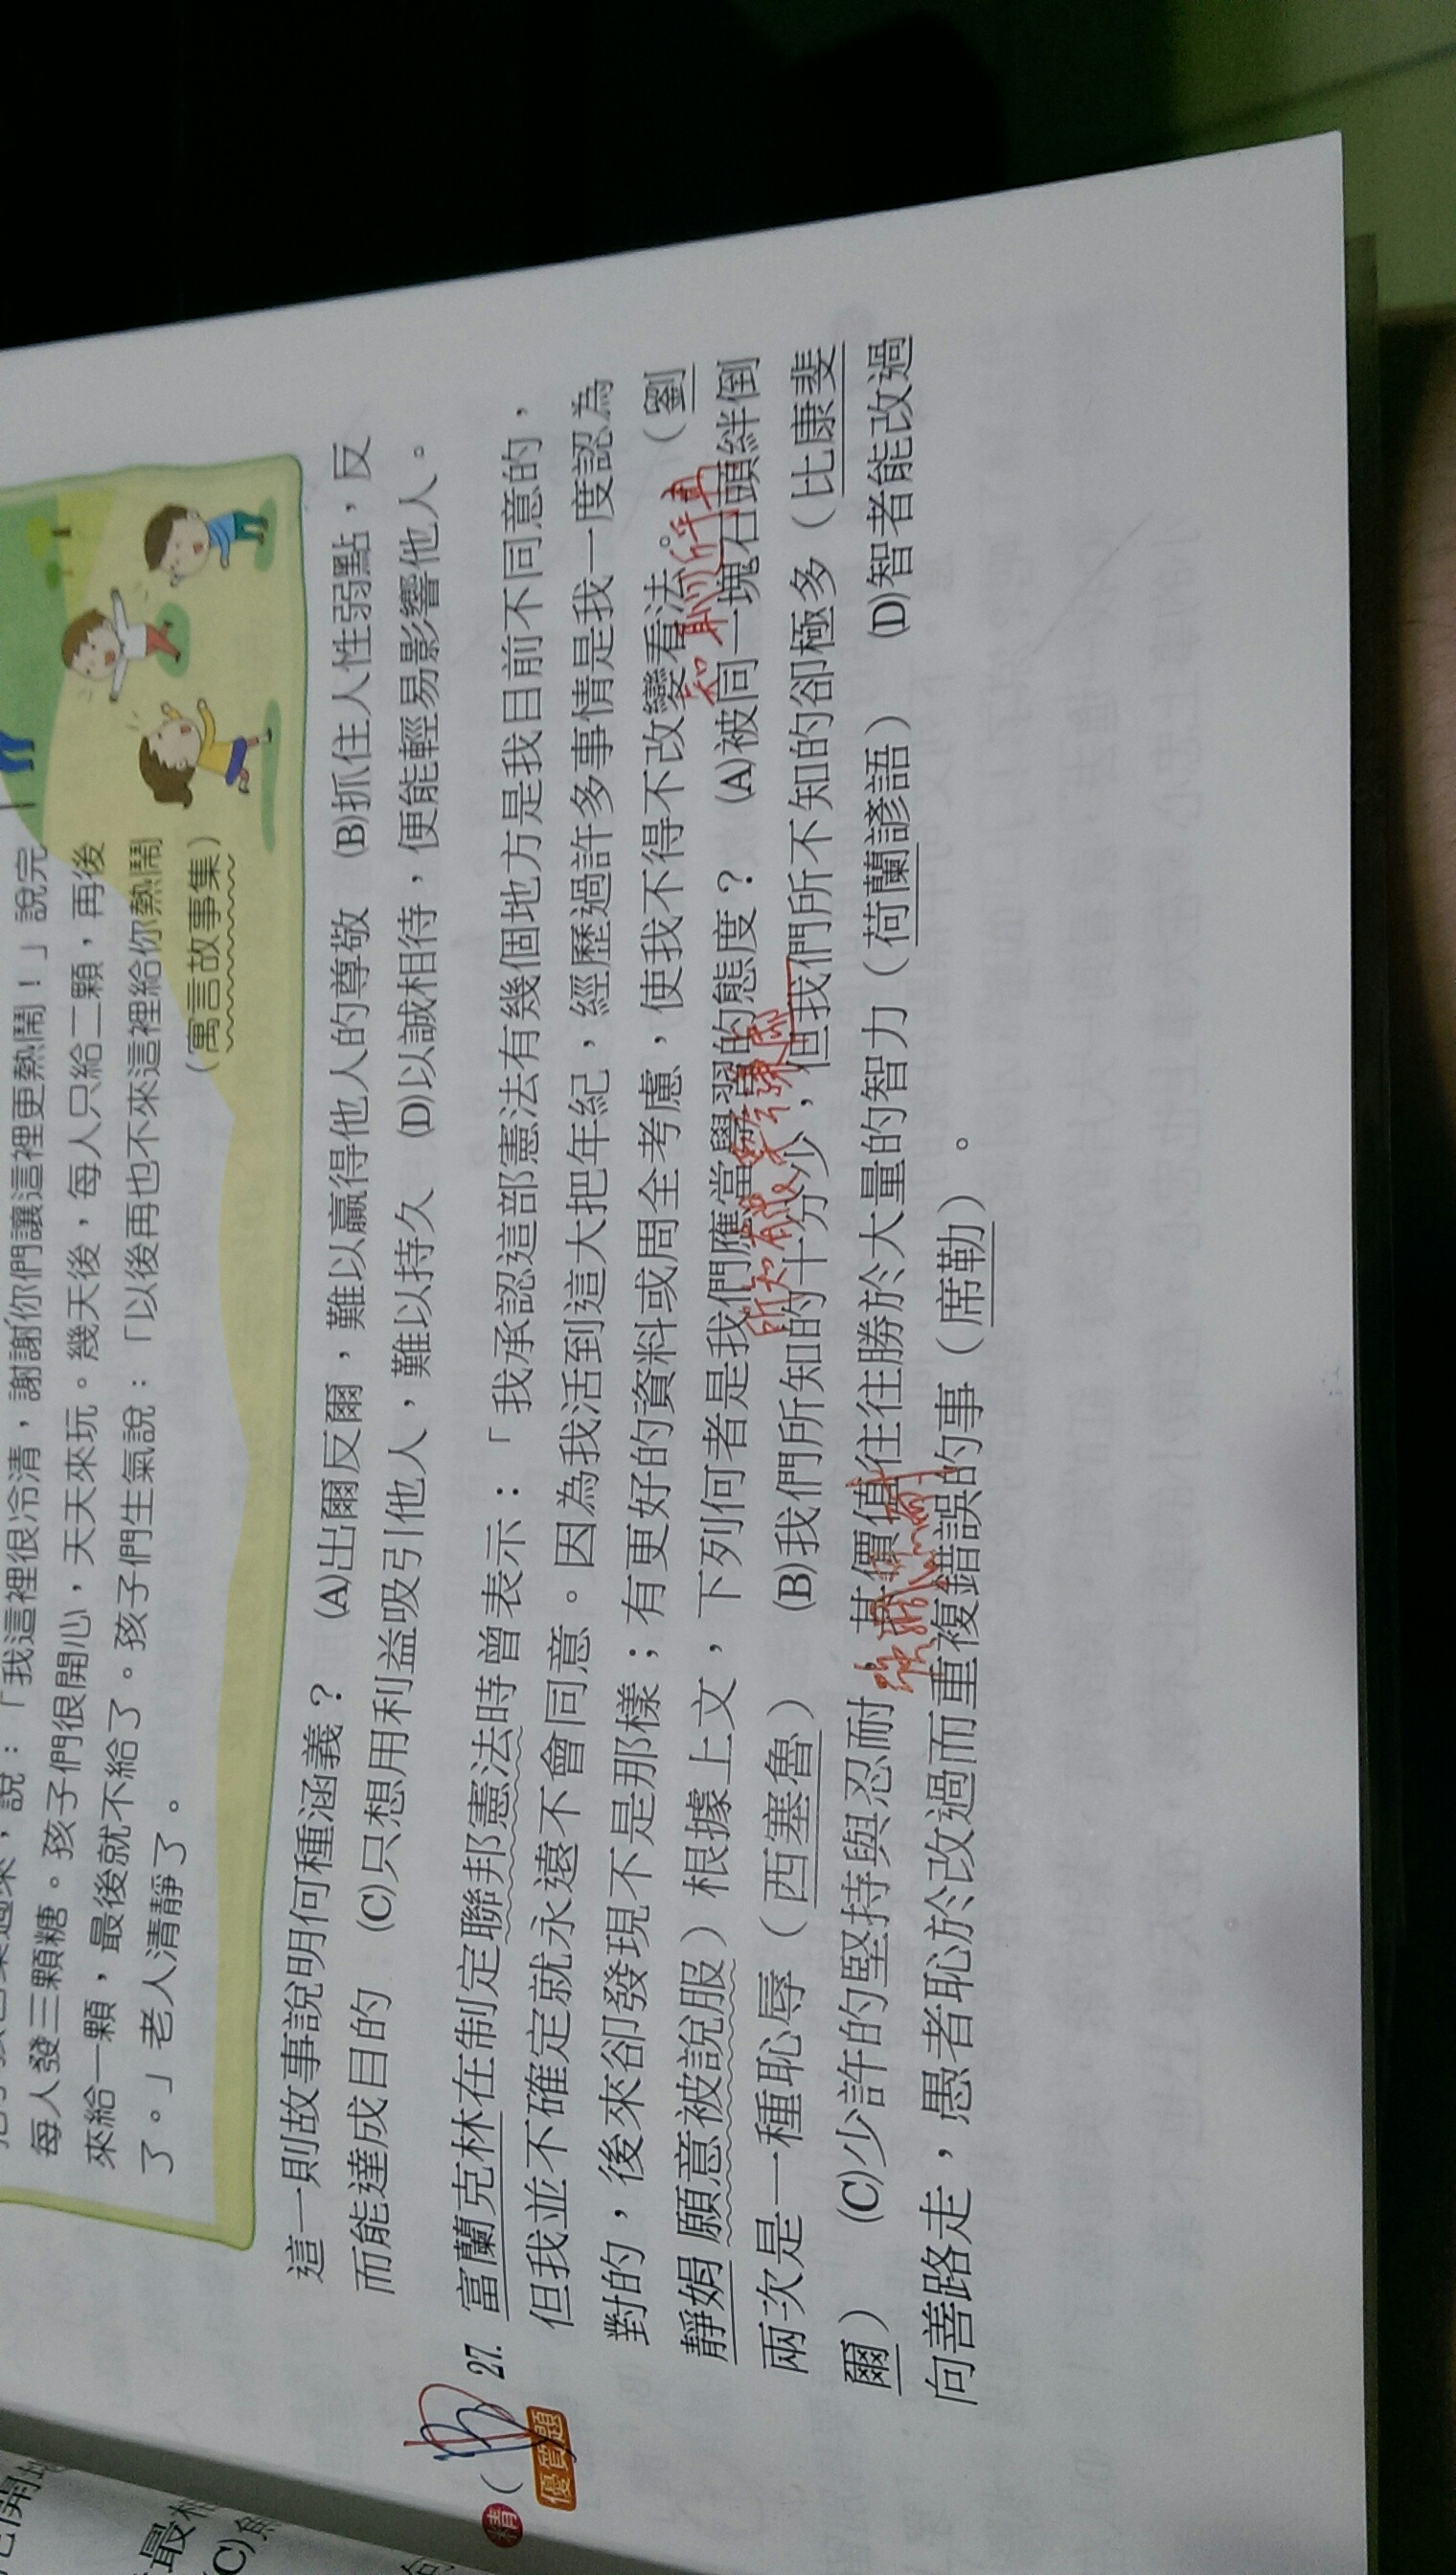 我這裡很冷清，謝謝你們讓這裡更熱鬧！」說完
每人發三顆糖。孩子們很開心，天天來玩。幾天後，每人只給二顆，再後
來給一顆，最後就不給了。孩子們生氣說：「以後再也不來這裡給你熱鬧
了。」老人清靜了。
（寓言故事集）
這一則故事說明何種涵義？ (A)出爾反爾，難以贏得他人的尊敬 (B)抓住人性弱點，反
而能達成目的 (C)只想用利益吸引他人，難以持久 (D)以誠相待，便能輕易影響他人。
精
優質題
（ ）27. 富蘭克林在制定聯邦憲法時曾表示：「我承認這部憲法有幾個地方是我目前不同意的，
但我並不確定就永遠不會同意。因為我活到這大把年紀，經歷過許多事情是我一度認為
對的，後來卻發現不是那樣；有更好的資料或周全考慮，使我不得不改變看法。（劉
靜娟 願意被說服）根據上文，下列何者是我們應當學習的態度？ (A)被同一塊石頭絆倒
兩次是一種恥辱（西塞魯） (B)我們所知的十分少，但我們所不知的卻極多（比康斐
爾） (C)少許的堅持與忍耐，其價值往往勝於大量的智力（荷蘭諺語） (D)智者能改過
向善路走，愚者恥於改過而重複錯誤的事（席勒）。